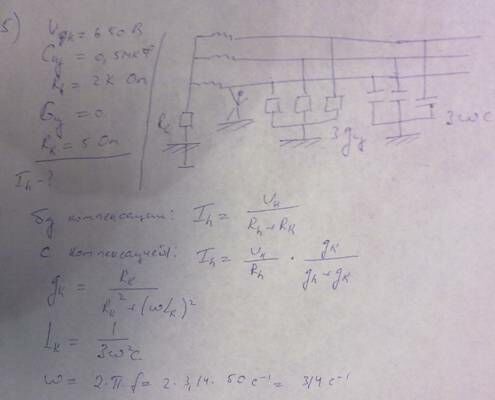 5)
U gk = 650 В
C y = 0,5 мкФ
R h = 2 к Оп
G y = 0
R k = 5 Оп
I h - ?
R k
3 g y
3 ω c
без компенсации: I h = U k / (R h + R k)
с компенсацией: I h = U k / R h · g k / (g h + g k)
g k = R k / (R k ² + (ω L k)²)
L k = 1 / 3ω²C
ω = 2·π·f = 2·3,14·50 c⁻¹ = 314 c⁻¹